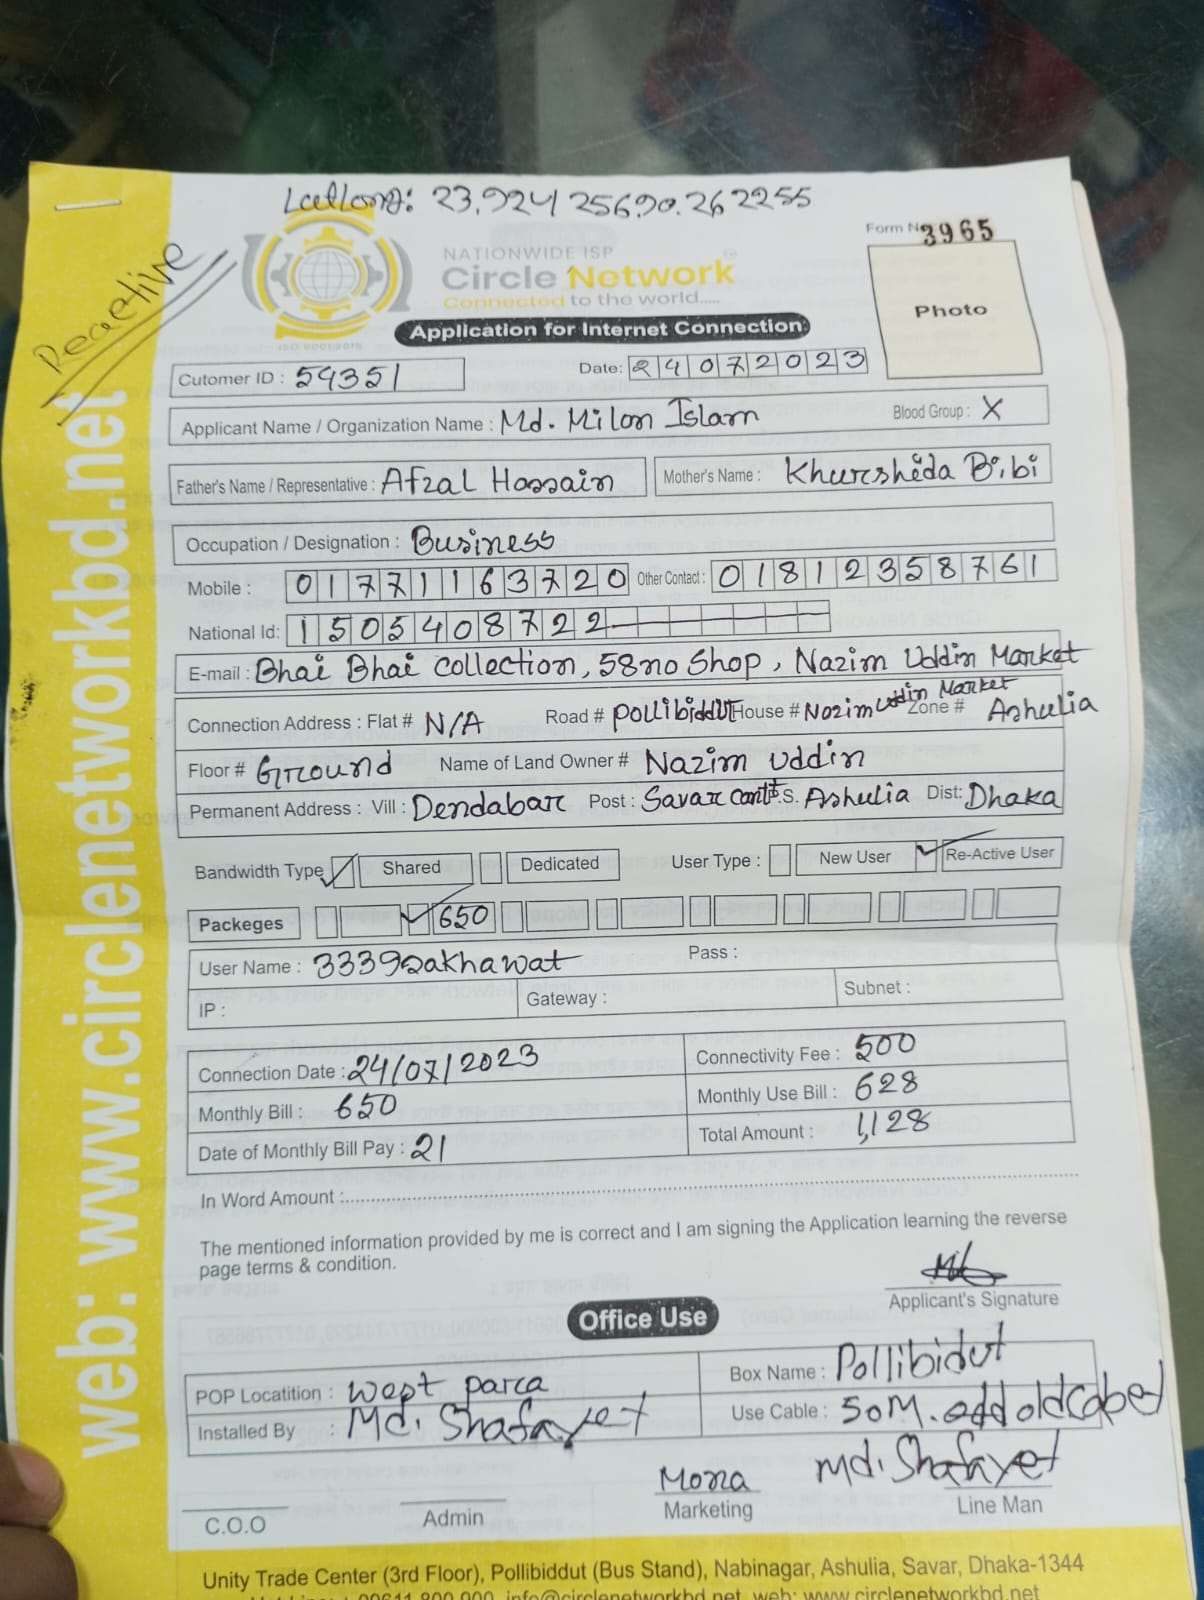 Latlong: 23.924256,90.262255
Reactive
Form No 3965
NATIONWIDE ISP
Circle Network
Connected to the world.....
Photo
Application for Internet Connection
Cutomer ID : 54351
Date: 24072023
Applicant Name / Organization Name : Md. Milon Islam Blood Group : X
Father's Name / Representative : Afzal Hossain Mother's Name : Khursheda Bibi
Occupation / Designation : Business
Mobile : 01771163720 Other Contact : 01812358761
National Id: 1505408722
E-mail : Bhai Bhai Collection, 58 no Shop, Nazim Uddin Market
Connection Address : Flat # N/A Road # Pollibiddut House # Nazim Uddin Market Zone # Ashulia
Floor # Ground Name of Land Owner # Nazim Uddin
Permanent Address : Vill : Dendabar Post : Savar Cantt P.S. Ashulia Dist: Dhaka
Bandwidth Type Shared Dedicated User Type : New User Re-Active User
Packeges 650
User Name : 3339sakhawat Pass :
IP : Gateway : Subnet :
Connection Date : 24/07/2023 Connectivity Fee : 500
Monthly Bill : 650 Monthly Use Bill : 628
Date of Monthly Bill Pay : 21 Total Amount : 1,128
In Word Amount :
The mentioned information provided by me is correct and I am signing the Application learning the reverse
page terms & condition.
Applicant's Signature
Office Use
POP Locatition : West para Box Name : Pollibidut
Installed By : Md. Shafayet Use Cable : 50M. add old Cabel
Mona Md. Shafayet
C.O.O Admin Marketing Line Man
Unity Trade Center (3rd Floor), Pollibiddut (Bus Stand), Nabinagar, Ashulia, Savar, Dhaka-1344
09611 800 900, info@circlenetworkbd.net, web: www.circlenetworkbd.net
web: www.circlenetworkbd.net